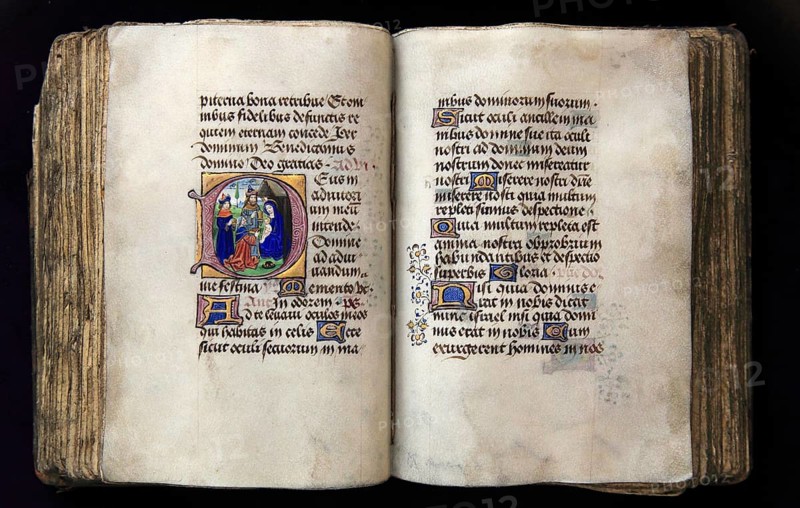 piterna bona retribue Et om
nibus fidelibus defunctis re
quiem eternam concede Per
dominum Benedicamus
domino Deo gratias Ad vi
Deus in
adiutori
um meū
intende
Domine
ad adiu
uandum
me festina Memento ρc
Ant In odorem ps
Ad te leuaui oculos meos
qui habitas in celis Ecce
sicut oculi seruorum in ma
nibus dominorum suorum
Sicut oculi ancille in ma
nibus domine sue ita oculi
nostri ad dominum deum
nostrum donec misereatur
nostri Miserere nostri dñe
miserere nostri quia multum
repleti sumus despectione
Quia multum repleta est
anima nostra obprobrium
habundantibus et despectio
superbis Gloria
Nisi quia dominus e
rat in nobis dicat
nunc israel nisi quia domi
nus erat in nobis Cum
exurgerent homines in nos
PHOTO12